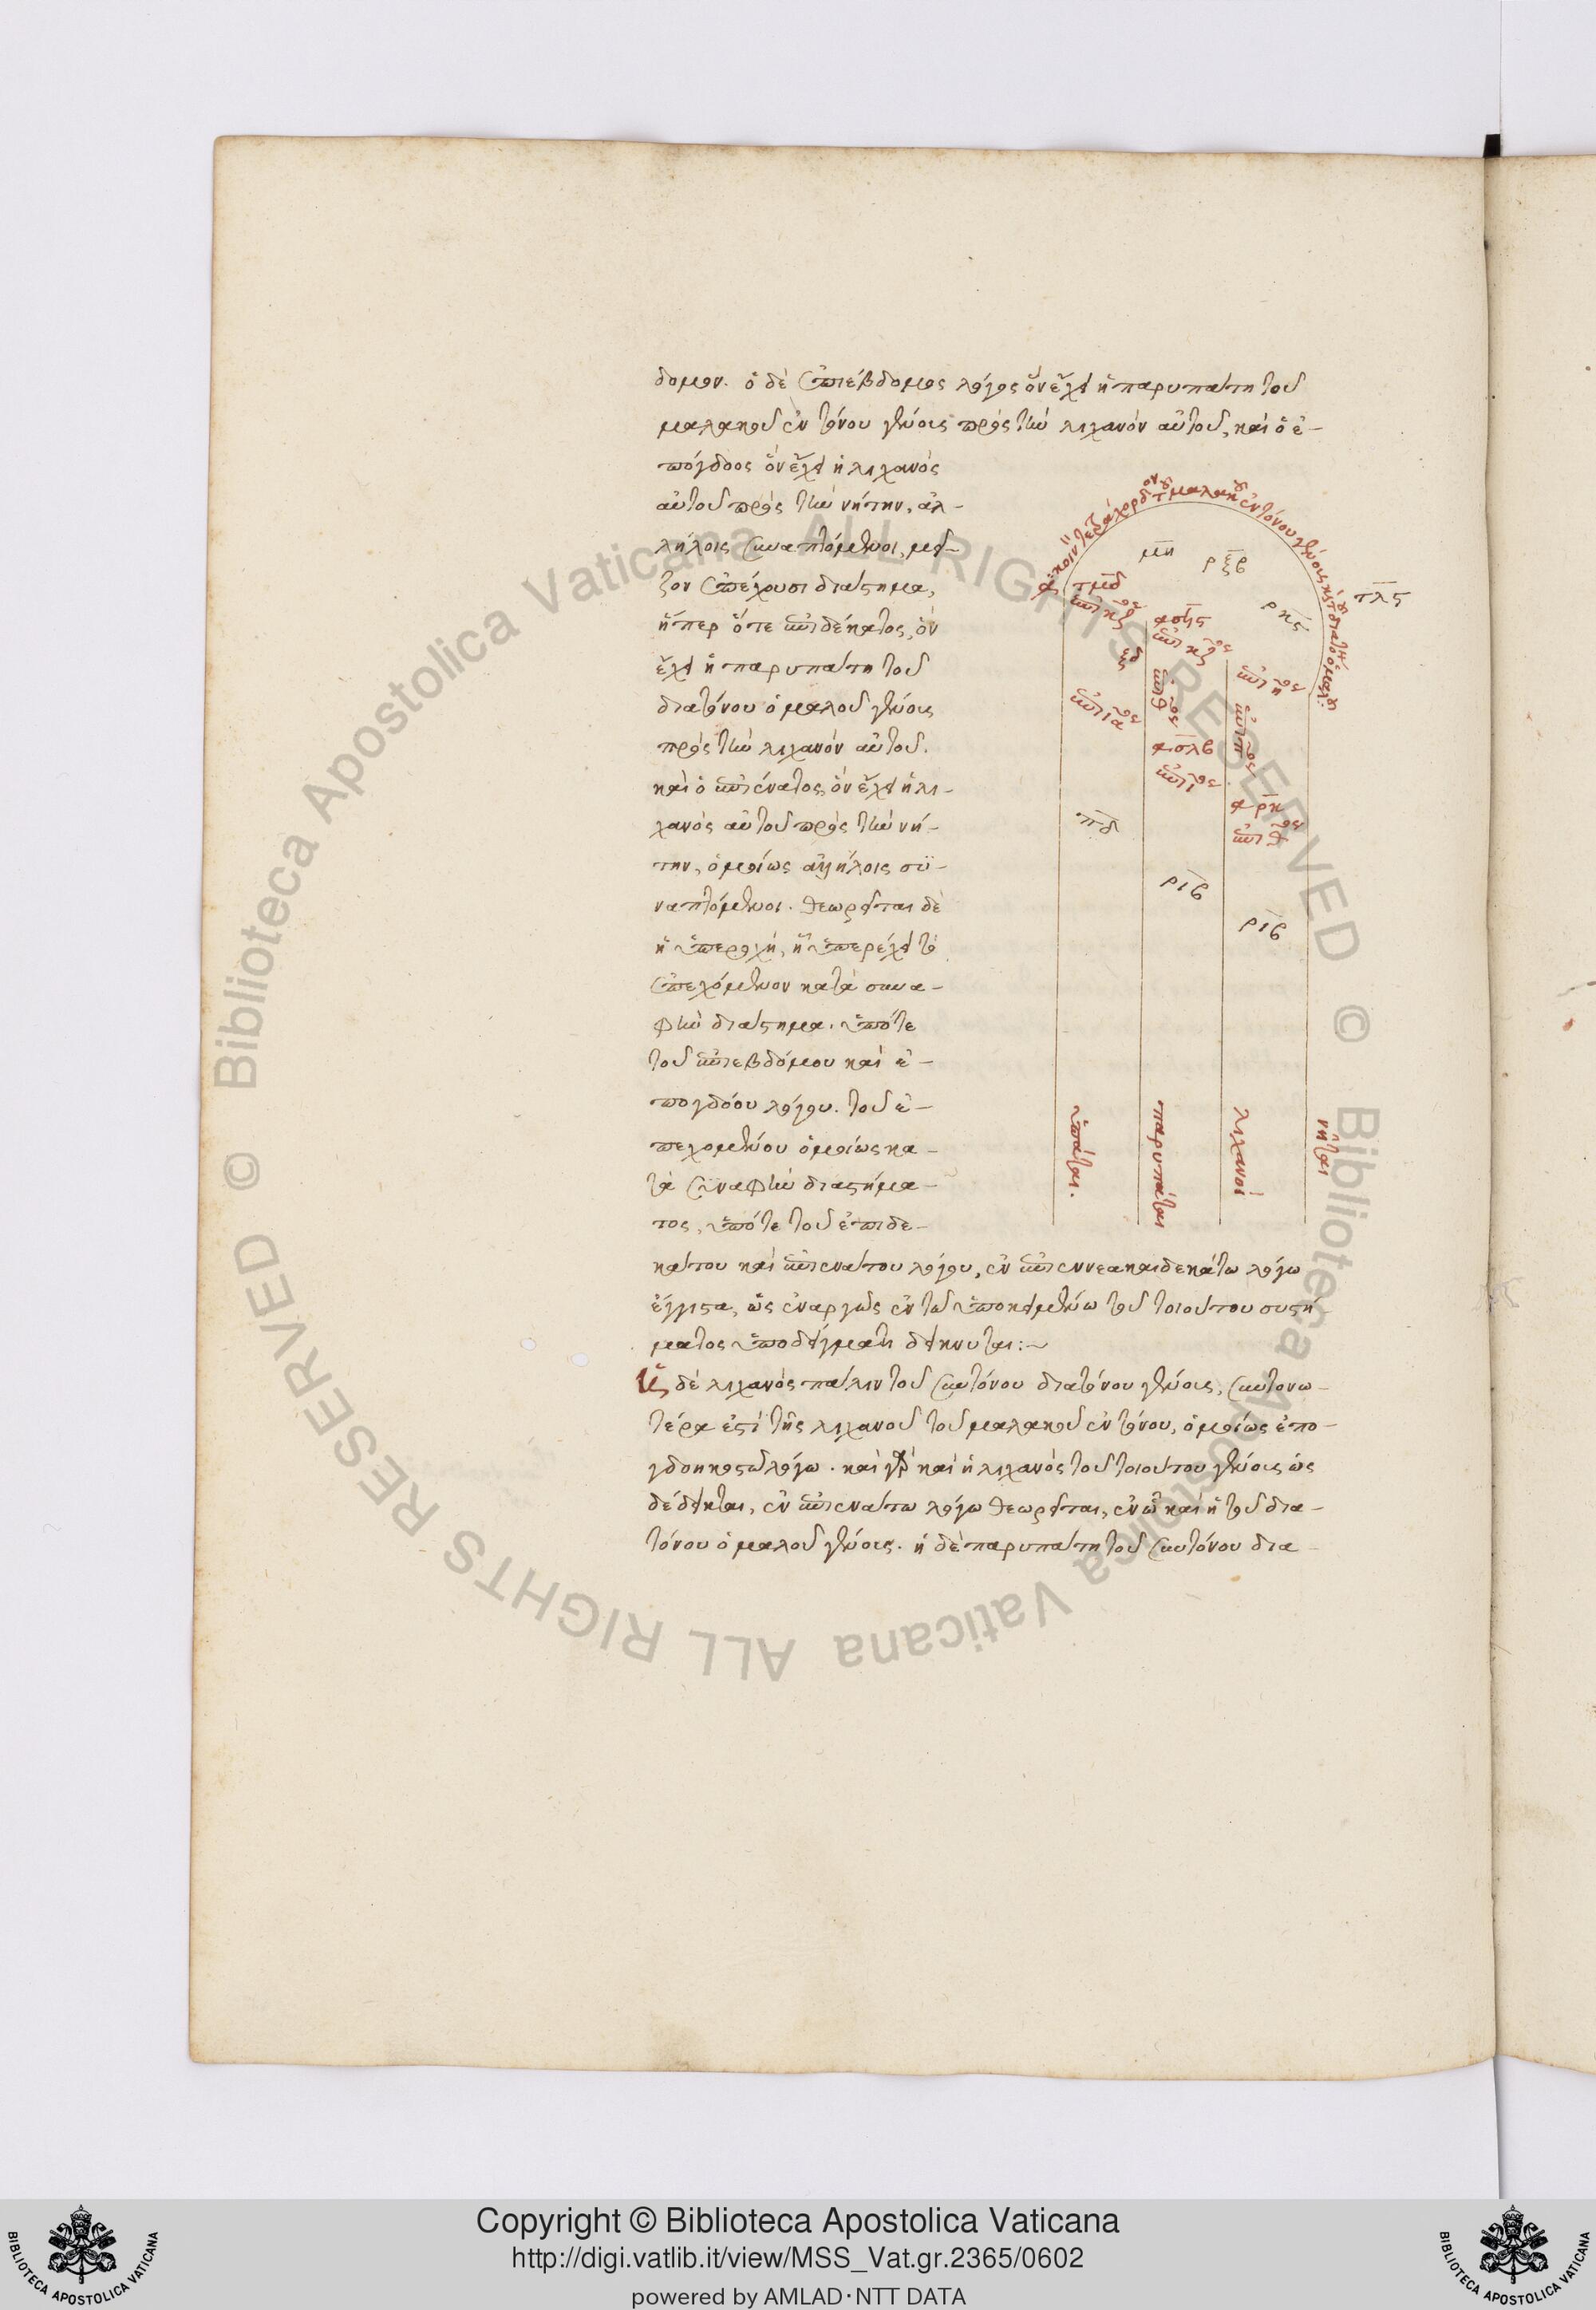 δομον. ὁ δὲ ἐπιέβδομος λόγος ὃν ἔχει ἡ παρυπάτη τοῦ
μαλακοῦ ἐντόνου γένους πρὸς τὴν λιχανὸν αὐτοῦ, καὶ ὁ ἐ-
πόγδοος ὃν ἔχει ἡ λιχανὸς
αὐτοῦ πρὸς τὴν νήτην, ἀλ-
λήλοις συναπτόμενοι, μεῖ-
ζον ἀπέχουσι διάστημα,
ἤπερ ὅτε ἐπιδέκατος, ὃν
ἔχει ἡ παρυπάτη τοῦ
διατόνου ὁμαλοῦ γένους
πρὸς τὴν λιχανὸν αὐτοῦ.
καὶ ὁ ἐπιένατος, ὃν ἔχει ἡ λι-
χανὸς αὐτοῦ πρὸς τὴν νή-
την, ὁμοίως ἀλλήλοις συ-
ναπτόμενοι. θεωρεῖται δὲ
ἡ ὑπεροχὴ, ἣ ὑπερέχει τὸ
ἀπεχόμενον κατὰ συνα-
φὴν διάστημα. ὑπό τε
τοῦ ἐπιεβδόμου καὶ ἐ-
πογδόου λόγου. τοῦ ἐ-
πεχομένου ὁμοίως κα-
τὰ συναφὴν διαστήμα-
τος, ὑπό τε τοῦ ἐπιδε-
κάτου καὶ ἐπιενάτου λόγου, ἐν ἐπιεννεακαιδεκάτω λόγω
ἔγγιστα, ὡς ἐναργῶς ἐν τῶ ὑποκειμένω τοῦ τοιούτου συστή
ματος ὑποδείγματι δείκνυται:~
Ἡ δὲ λιχανὸς πάλιν τοῦ συντόνου διατόνου γένους, συντονω-
τέρα ἐστὶ τῆς λιχανοῦ τοῦ μαλακοῦ ἐντόνου, ὁμοίως ἐπο-
γδοηκοστῶ λόγω. καὶ γὰρ καὶ ἡ λιχανὸς τοῦ τοιούτου γένους ὡς
δέδεικται, ἐν ἐπιενάτω λόγω θεωρεῖται, ἐν ὧ καὶ ἡ τοῦ δια-
τόνου ὁμαλοῦ γένους. ἡ δὲ παρυπάτη τοῦ συντόνου δια-
μη
ρξβ
ρκς
τλς
τμδ
ξδ
πδ
ριβ
ριβ
ὑπάται.
παρυπάται
λιχανοί
νῆται
Copyright © Biblioteca Apostolica Vaticana
http://digi.vatlib.it/view/MSS_Vat.gr.2365/0602
powered by AMLAD·NTT DATA
BIBLIOTECA APOSTOLICA VATICANA
BIBLIOTECA APOSTOLICA VATICANA
© Biblioteca Apostolica Vaticana ALL RIGHTS RESERVED
© Biblioteca Apostolica Vaticana ALL RIGHTS RESERVED